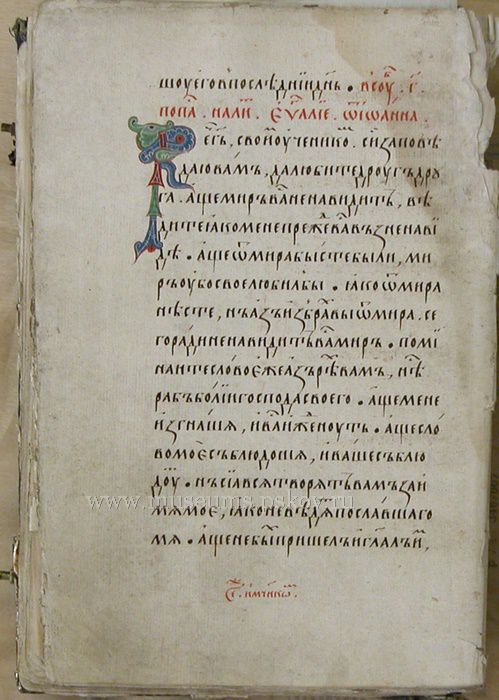 шоуегов послѣднїи днь. в соу҃. г҃.
по па҃. на ли҃. еѵ҃алїе. ѿ іѡанна.
Рече гь҃, своимъ оученикѡ. сїа заповѣ
даю вамъ, да любите дроугъ дрѹ
га. аще миръ ва҃ ненавидитъ, вѣ
дите ꙗко мене преже ва҃ възненави
дѣ. аще ѿ мира бысте были, ми
ръ оубо свое любилъ бы. ꙗкоже ѿ мира
нѣсте, нъ азъ избра҃ вы ѿ мира. се
го ради ненавидитъ ва҃ миръ. помї
наите слово еже азъ рѣ҃ вамъ, нѣ҃
рабъ болїи господа своего. аще мене
изгнашѧ, и ва҃ ижденоуть. аще сло
во мое съблюдошѧ, и ваше съблю
доу҃. нъ сїа всѧ творѧтъ вамъ за и
мѧ мое, ꙗко не вѣдѧ҃ пославшаго
мѧ. аще не бы҃ пришелъ и гл҃алъ и҃,
www.museums.pskov.ru